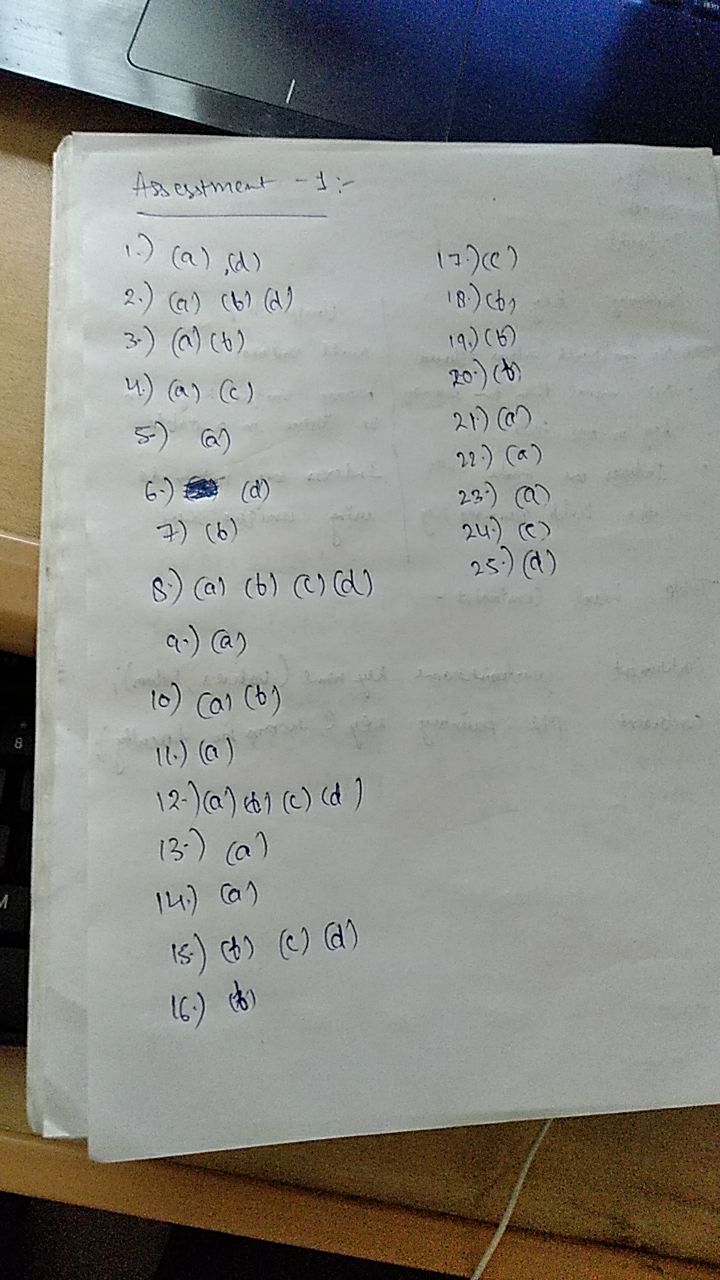 Assesstment - 1 :-
1.) (a) ,(d)
2.) (a) (b) (d)
3.) (a) (b)
4.) (a) (c)
5.) (a)
6.) (d)
7) (b)
8.) (a) (b) (c) (d)
9.) (a)
10) (a) (b)
11.) (a)
12.) (a) (b) (c) (d)
13.) (a)
14.) (a)
15.) (b) (c) (d)
16.) (b)
17.) (c)
18.) (b)
19.) (b)
20.) (b)
21.) (a)
22.) (a)
23.) (a)
24.) (c)
25.) (d)
8
M